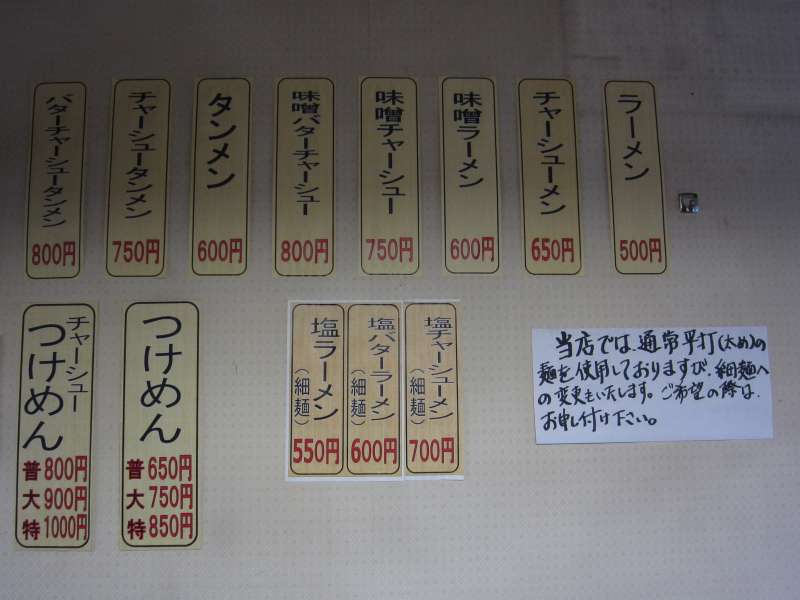 ラーメン
500円
チャーシューメン
650円
味噌ラーメン
600円
味噌チャーシュー
750円
味噌バターチャーシュー
800円
タンメン
600円
チャーシュータンメン
750円
バターチャーシュータンメン
800円
当店では、通常平打(太め)の
麺を使用しておりますが、細麺へ
の変更もいたします。ご希望の際は、
お申し付け下さい。
塩チャーシューメン
(細麺)
700円
塩バターラーメン
(細麺)
600円
塩ラーメン
(細麺)
550円
つけめん
普650円
大750円
特850円
チャーシュー
つけめん
普800円
大900円
特1000円